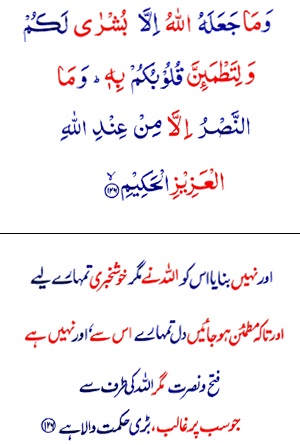 وَمَا جَعَلَهُ اللّٰهُ اِلَّا بُشْرٰى لَكُمْ
وَلِتَطْمَئِنَّ قُلُوْبُكُمْ بِهٖ ؕ وَمَا
النَّصْرُ اِلَّا مِنْ عِنْدِ اللّٰهِ
الْعَزِيْزِ الْحَكِيْمِ ۙ﴿۱۲۶﴾
اور نہیں بنایا اس کو اللہ نے مگر خوشخبری تمہارے لیے
اور تاکہ مطمئن ہو جائیں دل تمہارے اس سے، اور نہیں ہے
فتح و نصرت مگر اللہ کی طرف سے
جو سب پر غالب، بڑی حکمت والا ہے ﴿۱۲۶﴾